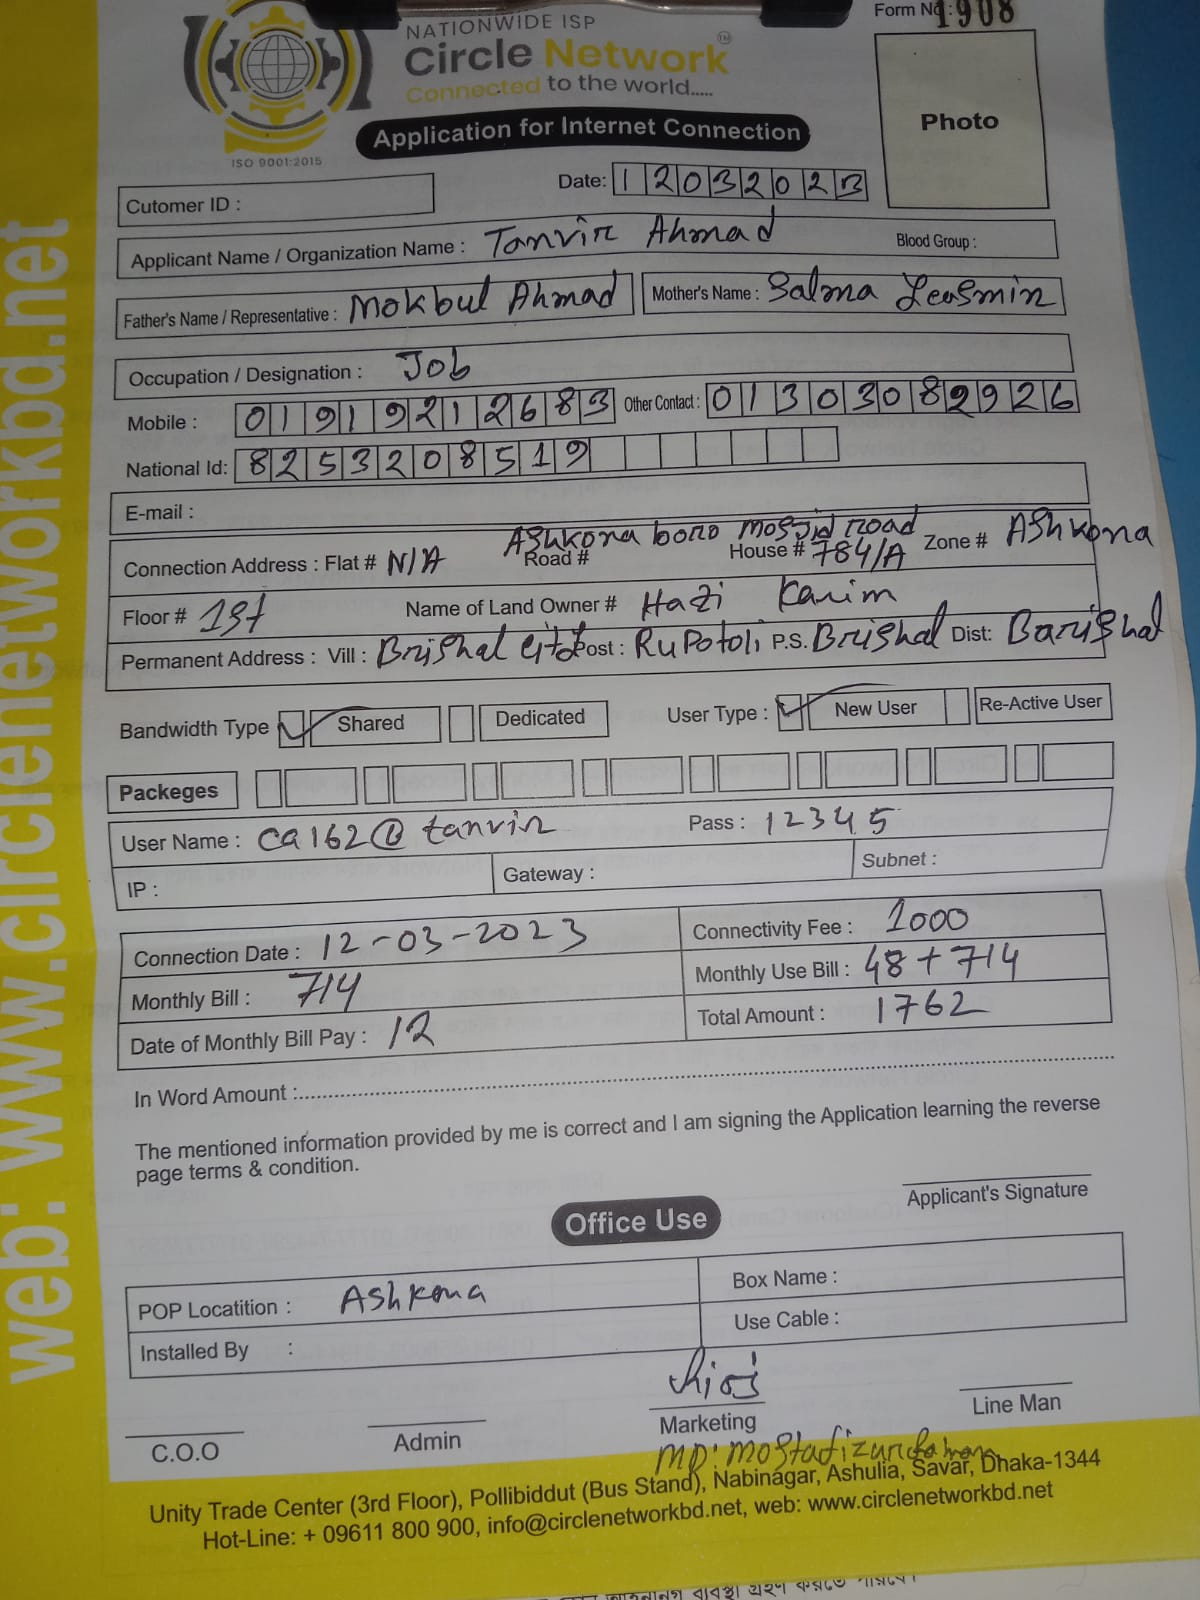 NATIONWIDE ISP
Form No : 1908
Circle Network TM
Connected to the world.....
ISO 9001:2015
Application for Internet Connection
Photo
Cutomer ID :
Date: 12032023
Applicant Name / Organization Name : Tanvir Ahmad Blood Group :
Father's Name / Representative : Mokbul Ahmad Mother's Name : Salma Yeasmin
Occupation / Designation : Job
Mobile : 01919212683 Other Contact : 01303082926
National Id: 8253208519
E-mail :
Connection Address : Flat # N/A Road # Ashkona boro mosjid road House # 784/A Zone # Ashkona
Floor # 1st Name of Land Owner # Hazi Karim
Permanent Address : Vill : Brishal City Post : Rupotoli P.S. Brishal Dist: Barishal
Bandwidth Type Shared Dedicated User Type : New User Re-Active User
Packeges
User Name : ca162@tanvir Pass : 12345
IP : Gateway : Subnet :
Connection Date : 12-03-2023 Connectivity Fee : 1000
Monthly Bill : 714 Monthly Use Bill : 48+714
Date of Monthly Bill Pay : 12 Total Amount : 1762
In Word Amount :
The mentioned information provided by me is correct and I am signing the Application learning the reverse
page terms & condition.
Applicant's Signature
Office Use
POP Locatition : Ashkona Box Name :
Installed By : Use Cable :
C.O.O Admin Marketing Line Man
MD: Mostafizur
Unity Trade Center (3rd Floor), Pollibiddut (Bus Stand), Nabinagar, Ashulia, Savar, Dhaka-1344
Hot-Line: + 09611 800 900, info@circlenetworkbd.net, web: www.circlenetworkbd.net
web: www.circlenetworkbd.net
ব্যবস্থা গ্রহণ করতে পারবে।